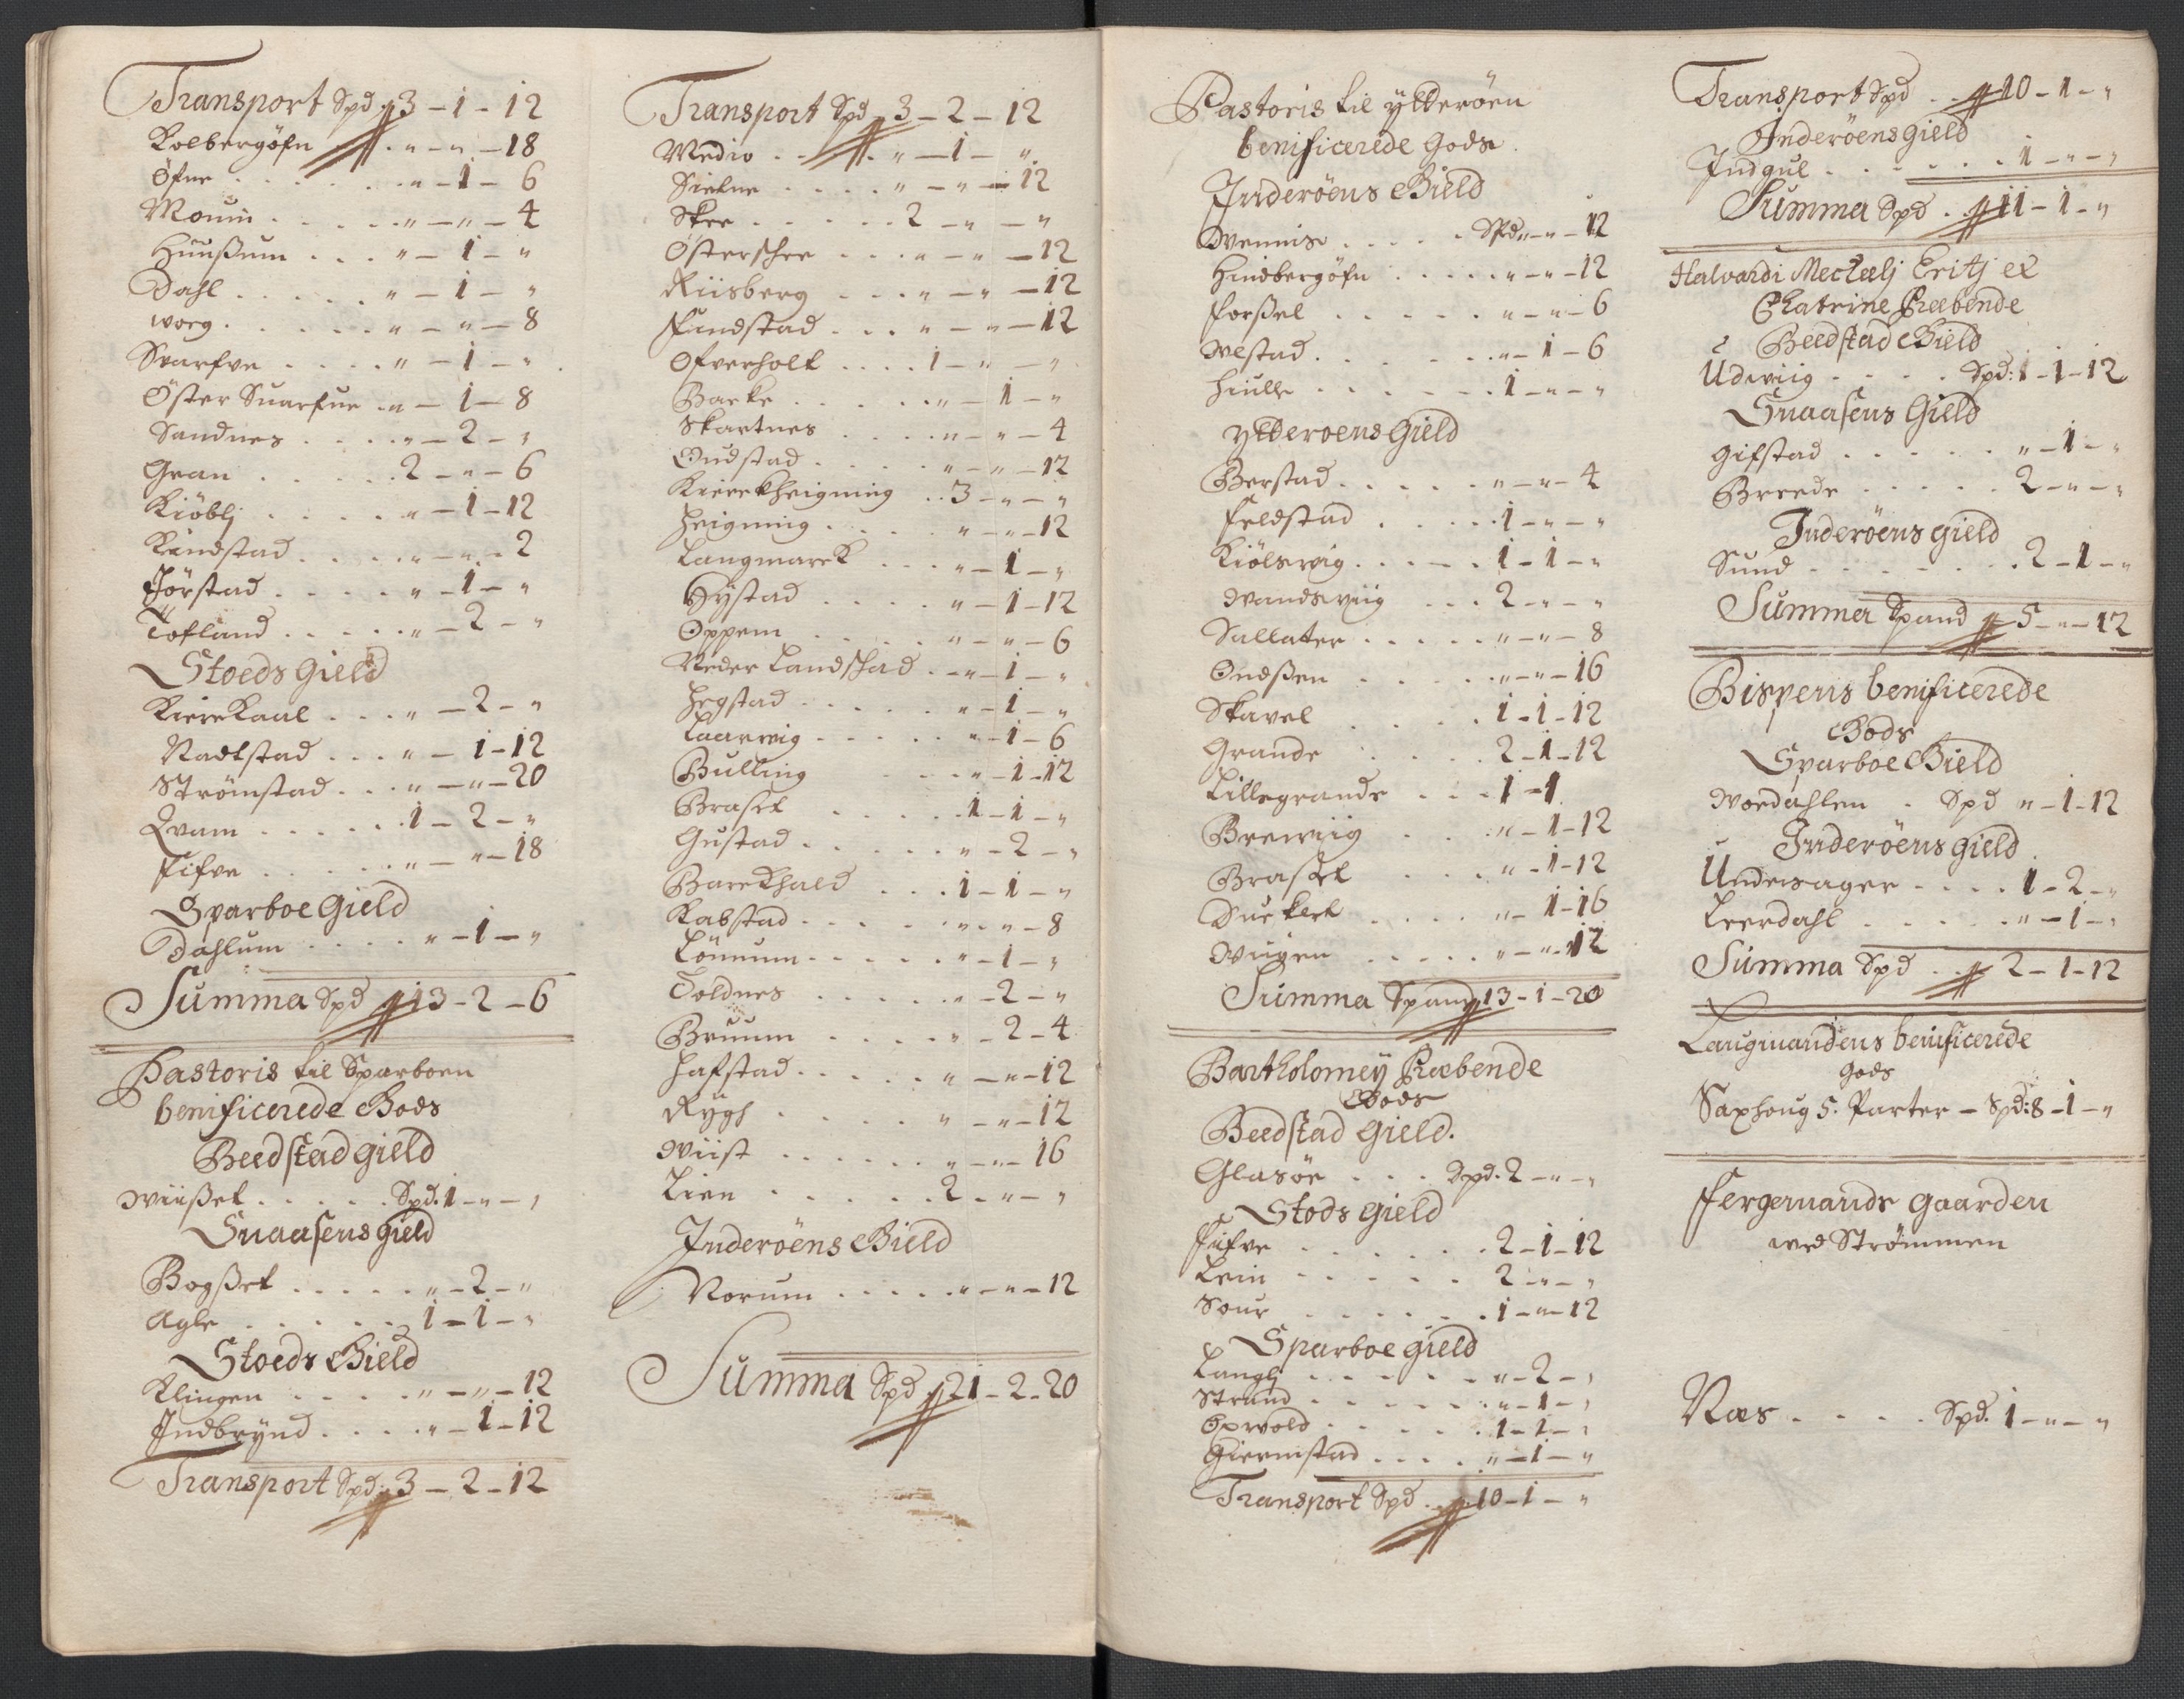 Transport Spd 3 - 1 - 12
Kolbergöfn . . " - " - 18
Öfne . . . . . " - 1 - 6
Moum . . . . " - " - 4
Huußum . . . " - 1 - "
Dahl . . . . . " - 1 - "
worg . . . . . " - " - 8
Svarfve . . . . " - 1 - "
Öster Suarfue . " - 1 - 8
Sandnes . . . . " - 2 - "
Gran . . . . . 2 - " - 6
Kiöblj . . . . " - 1 - 12
Kindstad . . . . " - " - 2
Jörstad . . . . " - 1 - "
Tofland . . . . . " - 2 - "
Stoeds Gield
Kirekaal . . . " - 2 - "
Nadstad . . . " - 1 - 12
Strömstad . . . " - " - 20
Qvam . . . . . 1 - 2 - "
Fifve . . . . . " - " - 18
Sparboe Gield
Dahlum . . . . " - 1 - "
Summa Spd 13 - 2 - 6
Pastoris til Sparboen
benificerede Gods
Beedstad gield
wiißet . . . . . Spd. 1 - " - "
Snaasens gield
Bogßet . . . . . " - 2 - "
Agle . . . . . . 1 - 1 - "
Stoeds Gield
Klingen . . . . " - " - 12
Indbrynd . . . . " - 1 - 12
Transport Spd: 3 - 2 - 12
Transport Spd 3 - 2 - 12
Medio . . . . " - 1 - "
Sielne . . . . " - " - 12
Skee . . . . . 2 - " - "
Österschee . . . " - " - 12
Riisberg . . . . " - " - 12
Fundstad . . . " - " - 12
Ofverholt . . . . 1 - " - "
Barke . . . . . . " - 1 - "
Skartnes . . . . " - " - 4
Oudstad . . . . . " - " - 12
Kirekheigning . . 3 - " - "
heigning . . . . " - " - 12
Langmarck . . . " - 1 - "
Hÿstad . . . . " - 1 - 12
Oppem . . . . . " - " - 6
Neder Landstad . " - 1 - "
hegstad . . . . . " - 1 - "
Laarwig . . . . . " - 1 - 6
Bulling . . . . " - 1 - 12
Braset . . . . . . 1 - 1 - "
Gustad . . . . . " - 2 - "
Barekhald . . . . 1 - 1 - "
Kabstad . . . . . " - " - 8
Lönnum . . . . . " - 1 - "
Toldnes . . . . . " - 2 - "
Bruum . . . . . " - 2 - 4
Hafstad . . . . . " - " - 12
Rygh . . . . . . " - " - 12
wiist . . . . . . " - " - 16
Lien . . . . . . 2 - " - "
Inderöens Gield
Norum . . . . . " - " - 12
Summa Spd 21 - 2 - 20
Pastoris til ytteröen
benificerede Gods.
Inderöens Gield
wennis . . . . . Spd " - " - 12
Hindbergöfn . . . . . " - " - 12
Forßel . . . . . " - " - 6
westad . . . . . . " - 1 - 6
hiulle . . . . . . . 1 - " - "
ytteroens Gield
Berstad . . . . . . " - " - 4
Feldstad . . . . . 1 - " - "
Kiölswig . . . . . 1 - 1 - "
wandswiig . . . 2 - " - "
Sallater . . . . . " - " - 8
Oudßen . . . . . " - " - 16
Skavel . . . . . 1 - 1 - 12
Grande . . . . . 2 - 1 - 12
Lillegrande . . . 1 - 1
Brewiig . . . . " - 1 - 12
Braset . . . . " - 1 - 12
Sueklet . . . . " - 1 - 16
wuigen . . . . . " - " - 12
Summa Spand 13 - 1 - 20
Bartholomey Præbende
Gods
Beedstad Gield.
Glasöe . . . Spd. 2 - " - "
Stods gield
Fifve . . . . . . 2 - 1 - 12
Lein . . . . . 2 - " - "
Sour . . . . . . 1 - " - 12
Sparboe gield
Langlj . . . . . . " - 2 - "
Strand . . . . . . . " - 1 - "
Opvold . . . . . . 1 - 1 - "
Giermstad . . . . " - 1 - "
Transport Spd . . . 10 - 1 - "
Transport Spd . . 10 - 1 - "
Inderöens gield
Indgul . . . . . . 1 - " - "
Summa Spd . . 11 - 1 - "
Halvardi Mechelj Eritj et
Chatrine Præbende
Beedstad Gield
Udwiig . . . . . Spd: 1 - 1 - 12
Snaasens Gield
Gifstad . . . . . " - 1 - "
Breede . . . . . 2 - " - "
Inderöens gield
Sund . . . . . . . 2 - 1 - "
Summa Spand 5 - " - 12
Bispens benificerede
Gods
Sparboe Gield
Woedahlen . Spd " - 1 - 12
Inderöens gield
Undersager . . . . 1 - 2 - "
Leerdahl . . . . . " - 1 - "
Summa Spd . . 2 - 1 - 12
Laugmandens benificerede
Gods
Saxhoug 5. Parter - Spd: 8 - 1 - "
Fergemands gaarden
wed Strömmen
Næs . . . . . Spd. 1 - " - "